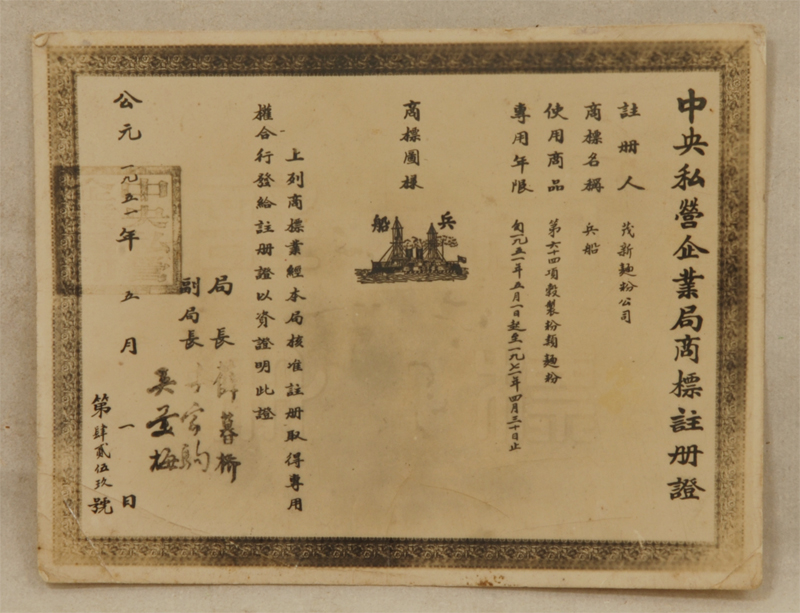 中央私營企業局商標註册證
註册人　茂新麵粉公司
商標名稱　兵船
使用商品　第六十四項穀製粉類麵粉
專用年限　自一九五一年五月一日起至一九七一年四月三十日止
商標圖樣
兵船
上列商標業經本局核准註册取得專用
權合行發給註册證以資證明此證
局長　薛暮橋
副局長
吳羹梅
公元一九五一年五月一日
第肆貳伍玖號